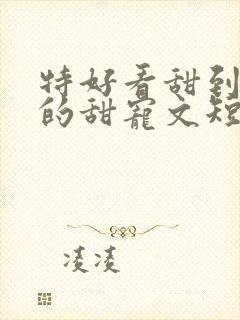 特好看甜到
的甜宠文短
凌凌